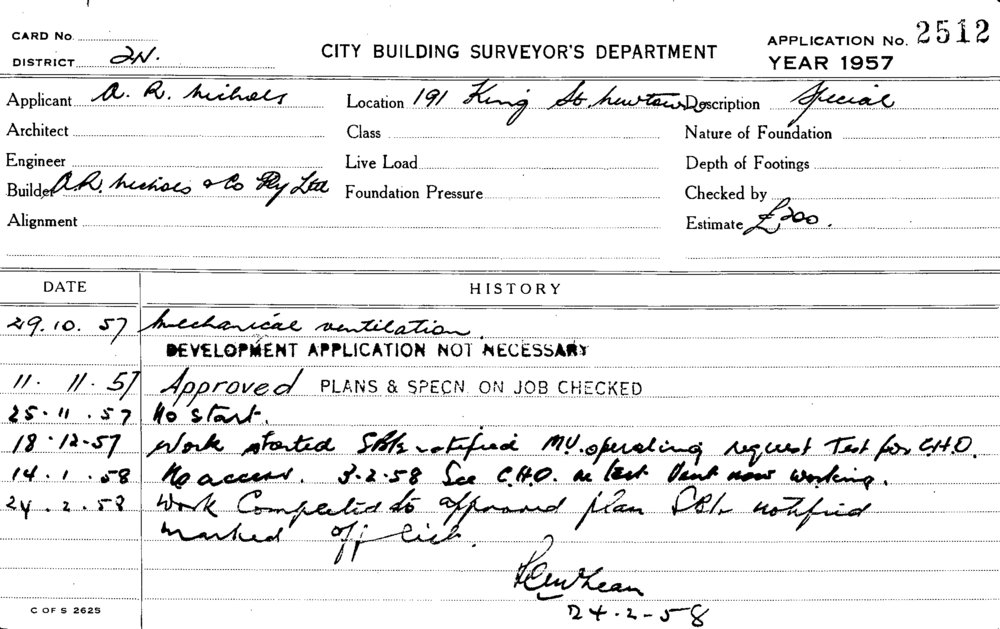 CARD No.
DISTRICT 2N.
CITY BUILDING SURVEYOR'S DEPARTMENT
APPLICATION No. 2512
YEAR 1957
Applicant A. R. Nichols Location 191 King St. Newtown Description Special
Architect Class Nature of Foundation
Engineer Live Load Depth of Footings
Builder A.R. Nichols & Co Pty Ltd Foundation Pressure Checked by
Alignment Estimate £200.
DATE HISTORY
29.10.57 Mechanical ventilation.
DEVELOPMENT APPLICATION NOT NECESSARY
11.11.57 Approved PLANS & SPECN. ON JOB CHECKED
25.11.57 No start.
18.12-57 Work started notified M.V. operating request Test for C.H.O.
14.1.58 No access. 3-2-58 See C.H.O. re test Vent now working.
24.2.58 Work Completed to approved plan notified
marked off
24-2-58
C OF S 2625